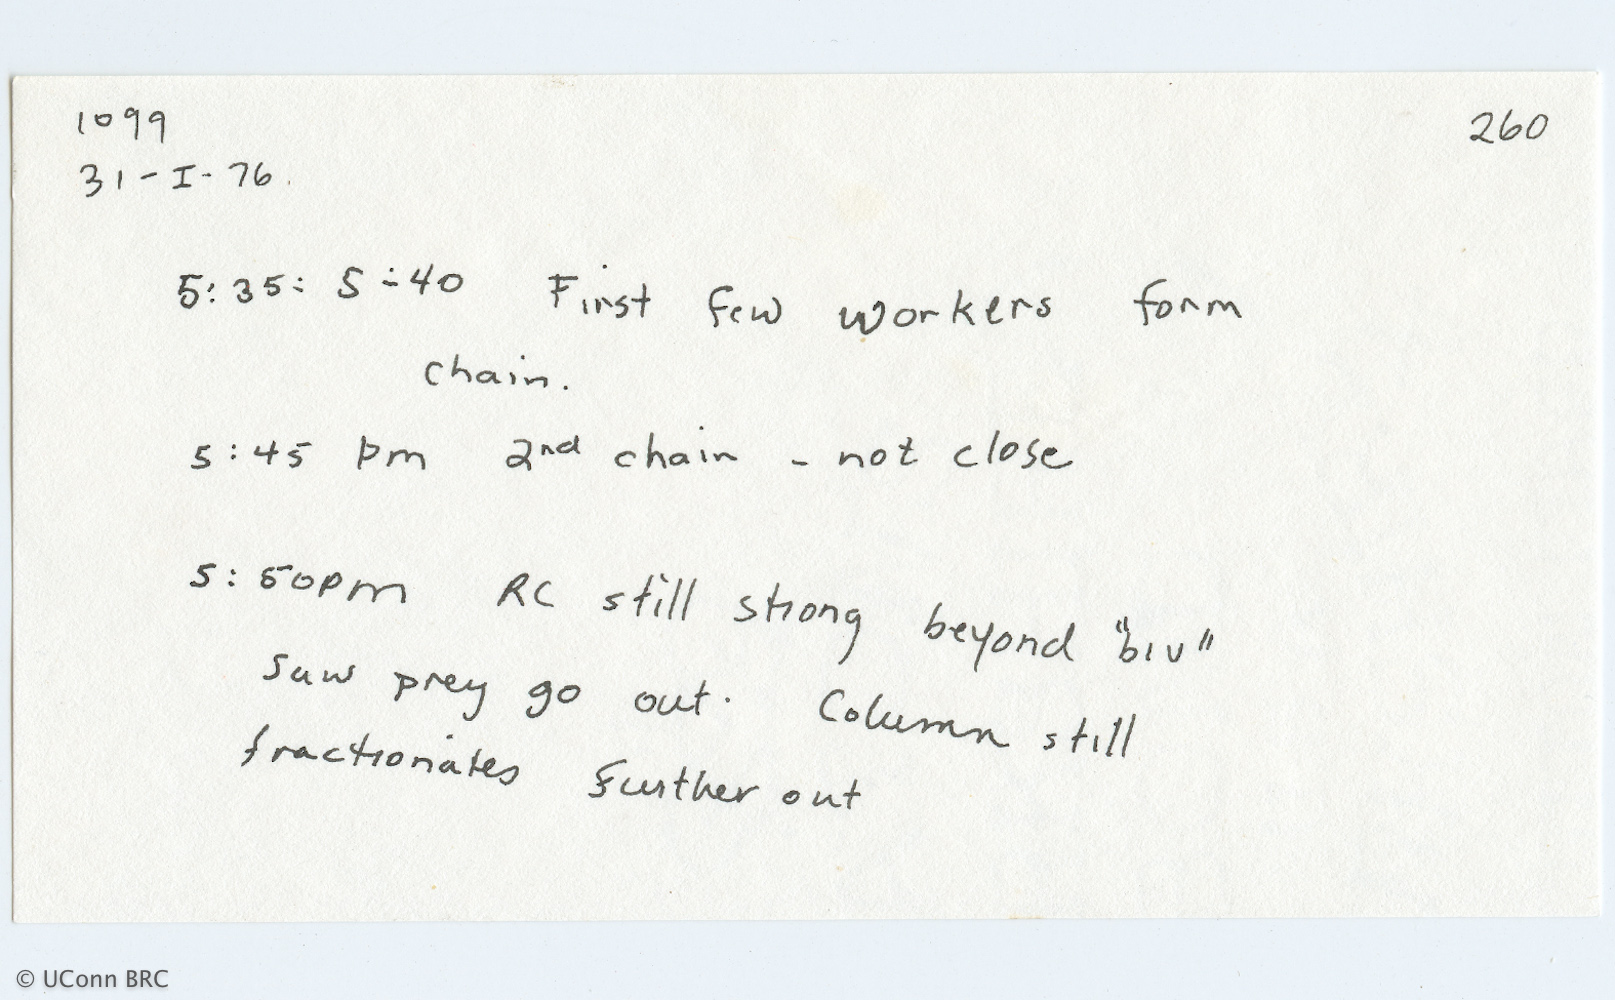 1099
260
31-I-76.
5:35: 5:40 First few workers form
chain.
5:45 pm 2nd chain - not close
5:50pm RC still strong beyond "biv"
saw prey go out. Column still
fractionates further out
© UConn BRC